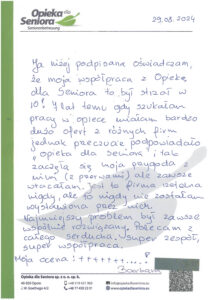 Opieka dla
Seniora
Seniorenbetreuung
29.08.2024
Ja niżej podpisana oświadczam,
że moja współpraca z Opieką
dla Seniora to był strzał w
10! Y lat temu gdy szukałam
pracy w opiece miałam bardzo
dużo ofert z różnych firm
jednak przeczucie podpowiadało
opieka dla seniora i tak
zaczęła się moja przygoda
z nimi (z przerwami) ale zawsze
wracałam. Jest to firma
ale nigdy nie zostałam
wystawiona przez nich.
Najmniejszy problem był zawsze
wspólnie rozwiązany. Polecam z
całego serducha. Super zespół,
super współpraca.
Moja ocena: ++++++....
Barbara
Opieka dla Seniora sp. z o. o. sp. k.
45-839 Opole